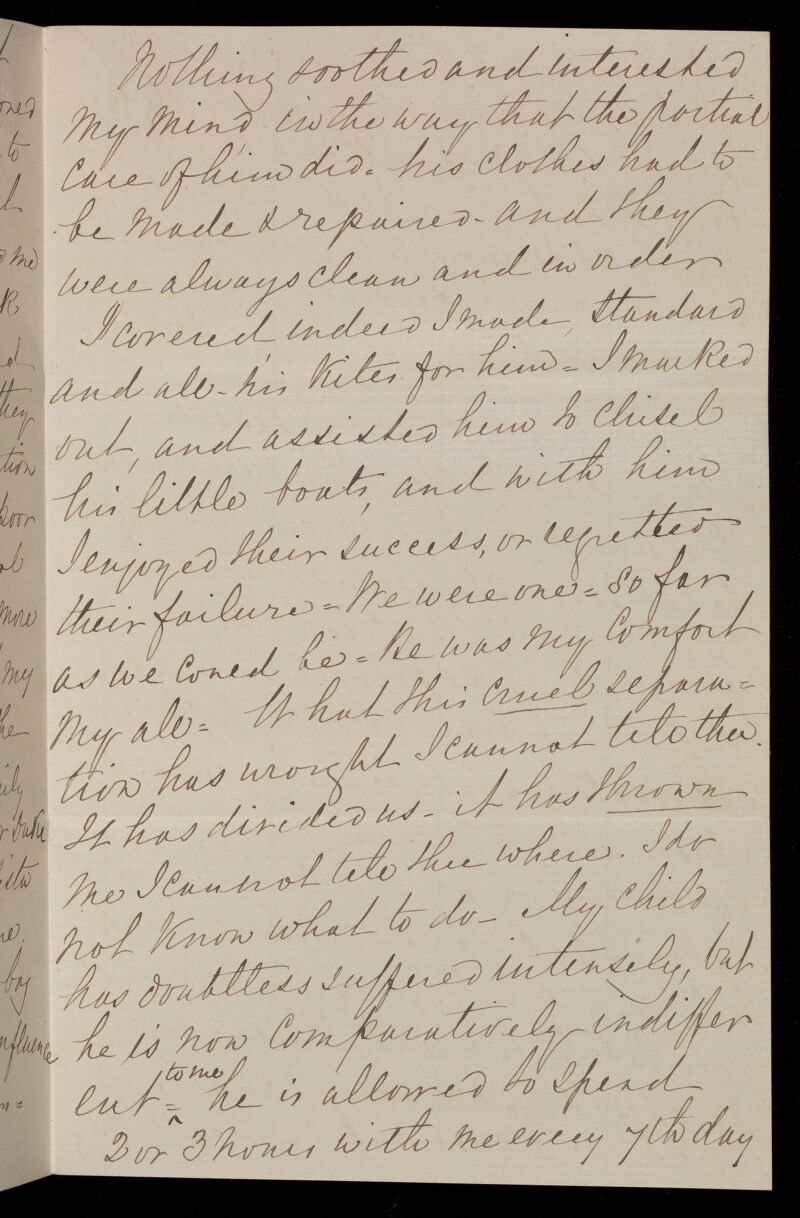 Nothing soothed and interested
my mind, in the way that the partial
care of him did = his clothes had to
be made & repaired - and they
were always clean and in order
I covered, indeed I made, standard
and all - his Kites for him = I marked
out, and assisted him to chisel
his little boats, and with him
I enjoyed their success, or regretted
their failure = We were one = so far
as we coued be = He was my comfort
my all = What this cruel separa=
tion has wrought I cannot tell thee.
It has divided us - it has thrown
me I cannot tell thee where. I do
not know what to do - My child
has doubtless suffered intensely, but
he is now comparatively indiffer
ent = to me he is allowed to spend
2 or 3 hours with me every 7th day
oned
to
me
R
d
they
tion
poor
more
my
he
ily
ista
boy
nfluence